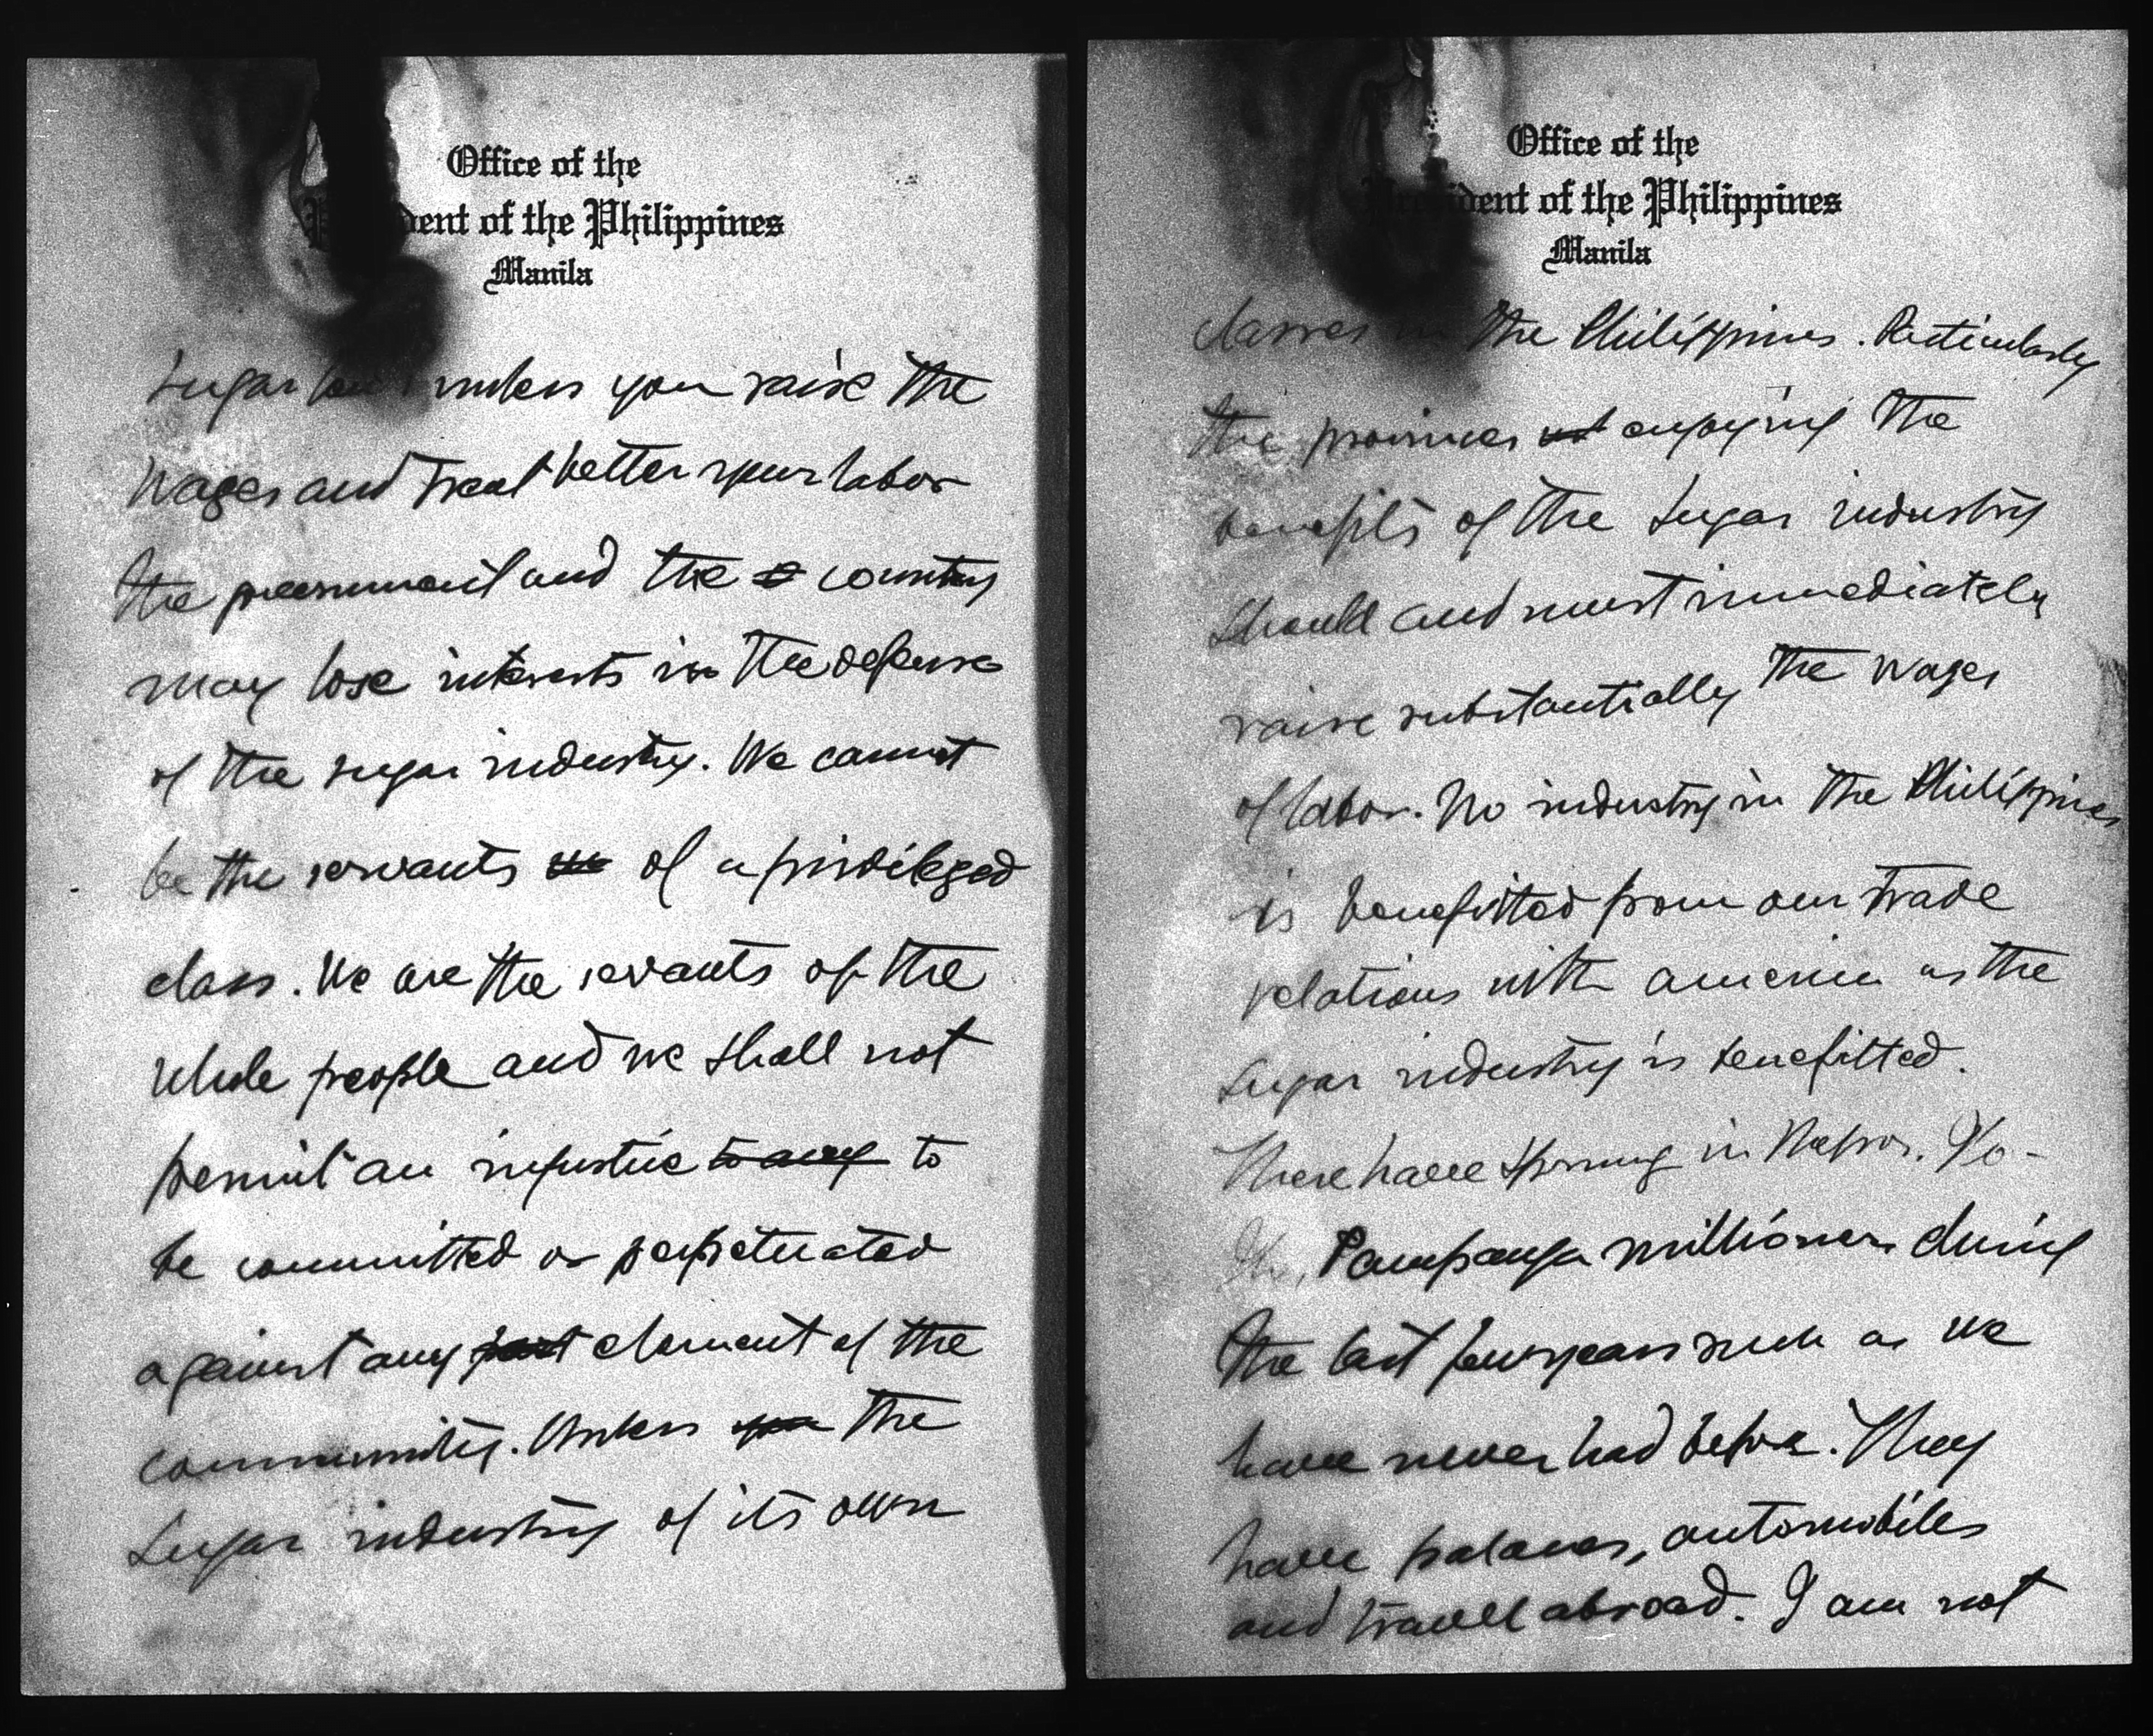 Office of the
President of the Philippines
Manila
sugar unless you raise the
wages and treat better your labor
the government and the country
may lose interests in the defense
of the sugar industry. We cannot
be the servants of a priviledged
class. We are the servants of the
whole people and we shall not
permit an injustice to any to
be committed or perpetuated
against any part element of the
community. Unless you the
sugar industry of its own
Office of the
President of the Philippines
Manila
classes in the Philippines. Particularly
the provinces enjoying the
benefits of the sugar industry
should and must immediately
raise substantially the wages
of labor. No industry in the Philippines
is benefitted from our trade
relations with america as the
sugar industry is benefitted.
There have sprung in Negros, Ilo-
ilo, Pampanga millioners during
the last few years such as we
have never had before. They
have palaces, automobiles
and travell abroad. I am not